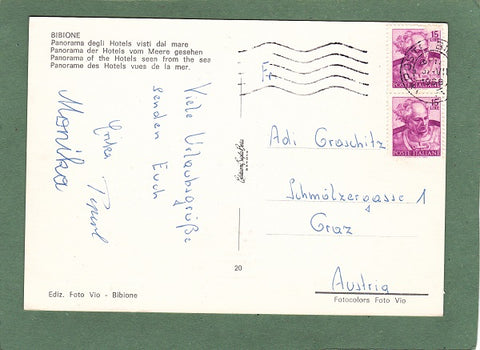 BIBIONE
Panorama degli Hotels visti dal mare
Panorama der Hotels vom Meere gesehen
Panorama of the Hotels seen from the sea
Panorama des Hotels vues de la mer.
Viele Urlaubsgrüße
senden Euch
Monika
15
POSTE ITALIANE
15
POSTE ITALIANE
Adi Graschitz
Schmölzergasse 1
Graz
Austria
20
Ediz. Foto Vio - Bibione
Fotocolors Foto Vio